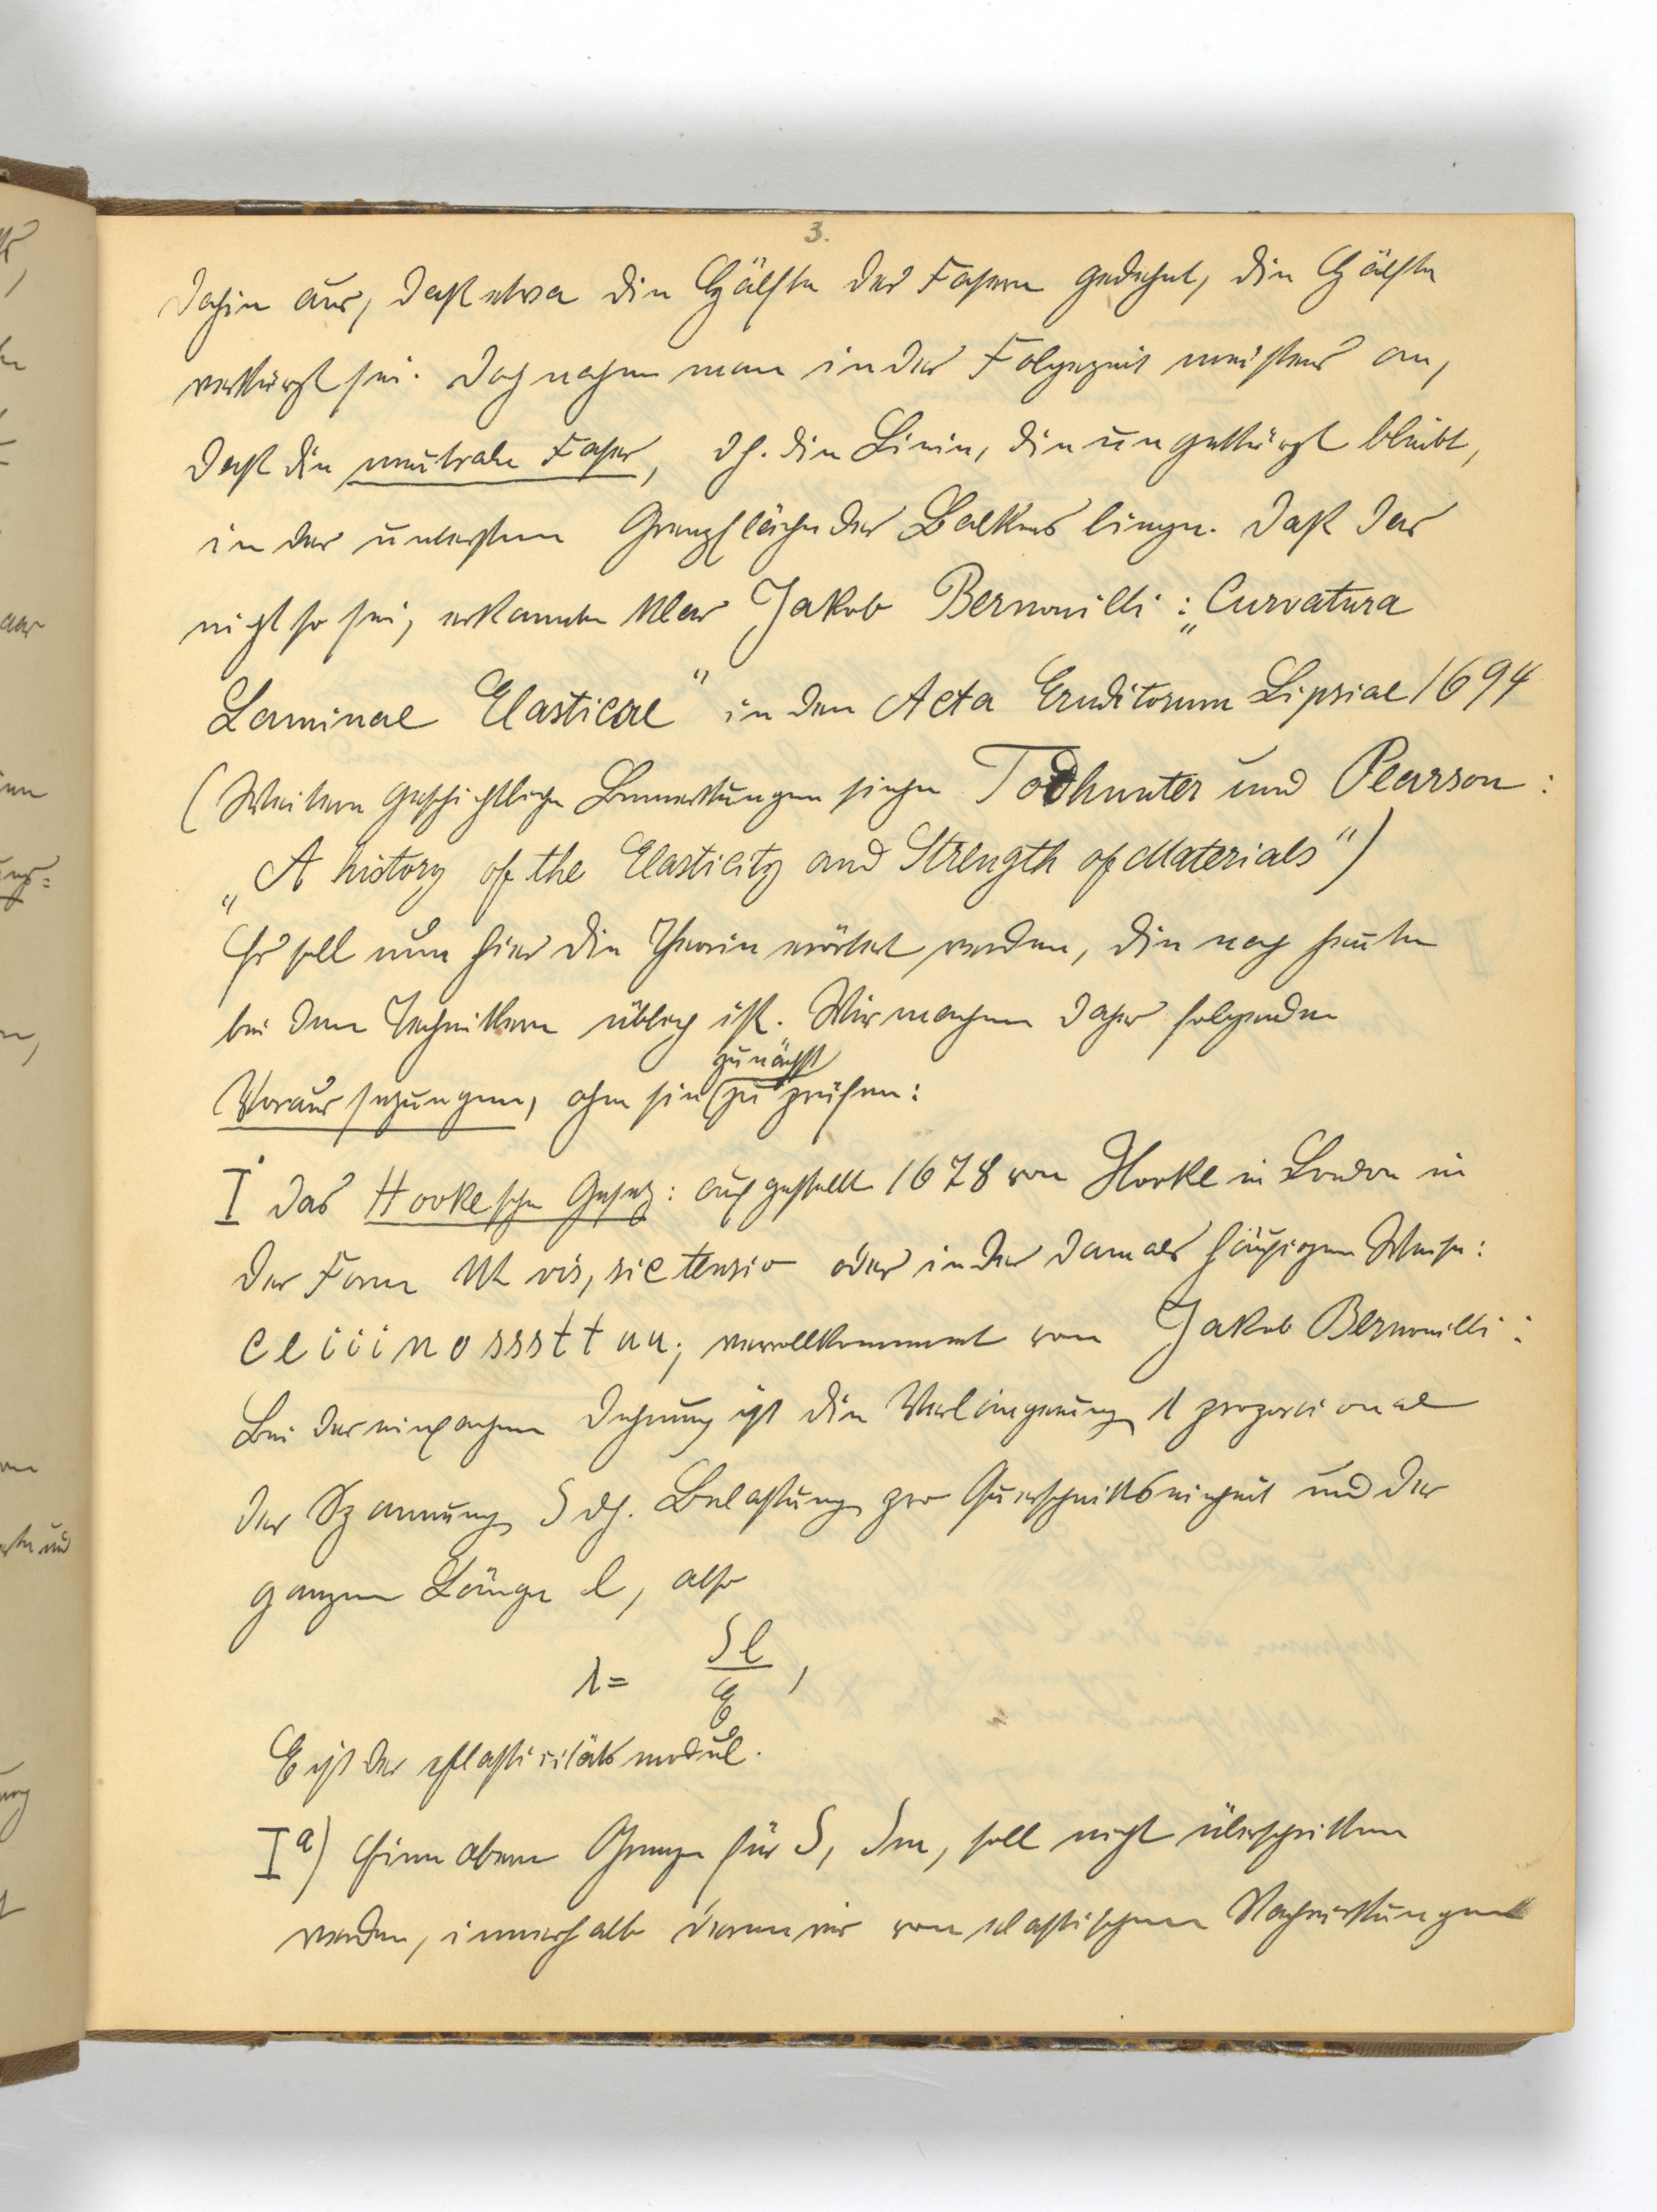 3.
dahin aus, daß etwa die Hälfte der Fasern gedehnt, die Hälfte
verkürzt sei. Doch nahm man in der Folgezeit meistens an,
daß die neutrale Faser, dh. die Linie, die ungekürzt bleibt,
in der untersten Grenzfläche des Balkens liege. Daß das
nicht so sei, erkannte klar Jakob Bernouilli: „Curvatura
Laminae Elasticae" in den Acta Eruditorum Lipsiae 1694
(Weitere geschichtliche Bemerkungen siehe Todhunter und Pearson:
„A history of the Elasticity and Strength of Materials")
Es soll nun hier die Theorie erörtert werden, die noch heute
bei den Technikern üblich ist. Wir machen daher folgende
zunächst
Voraussetzungen, ohne sie zu prüfen:
I. das Hookesche Gesetz: aufgestellt 1678 von Hooke in London in
der Form Ut vis, sic tensio oder in der damals häufigen Weise:
c e i i i n o s s s t t u u; vervollkommnet von Jakob Bernouilli:
Bei der einfachen Dehnung ist die Verlängerung λ proporcional
der Spannung S dh. Belastung pro Querschnittseinheit und der
ganzen Länge l, also
λ = Sl/E,
E ist der Elasticitätsmodul.
Ia) Eine obere Grenze für S, Sm, soll nicht überschritten
werden, innerhalb deren wir von elastischen Nachwirkungen